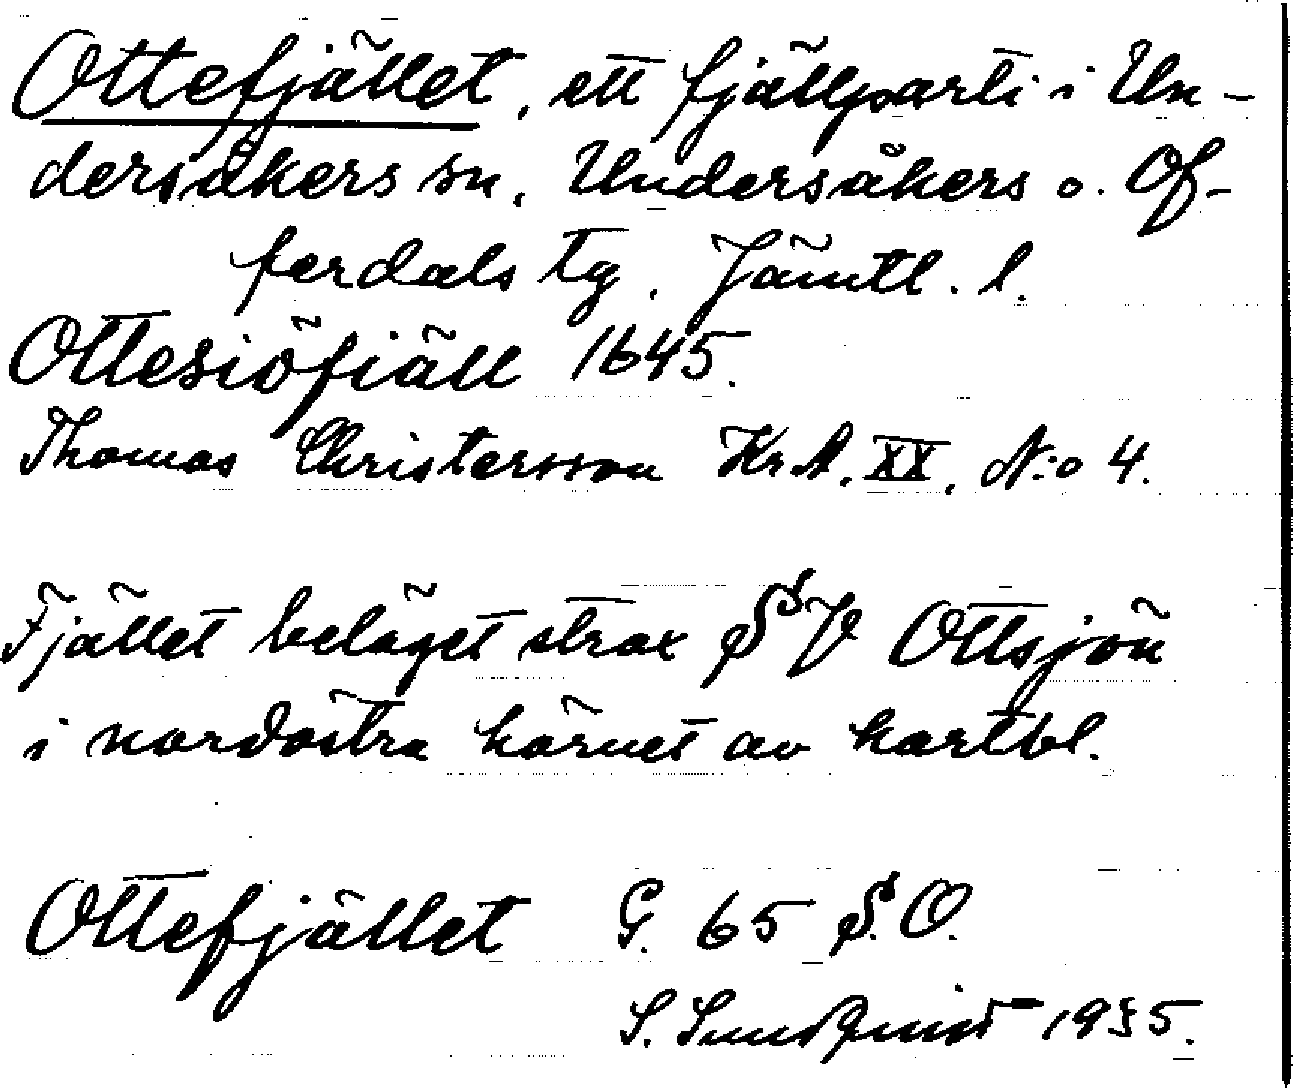 Ottefjället, ett fjällparti i Un-
dersåkers sn, Undersåkers o. Of-
ferdals tg, Jämtl. l.
Ottesiöfiäll 1645.
Thomas Christersson Kr.A. XX, N:o 4.
Fjället beläget strax SV Ottsjön
i nordöstra hörnet av kartbl.
Ottefjället G. 65 S.O.
S. Sundquist 1935.